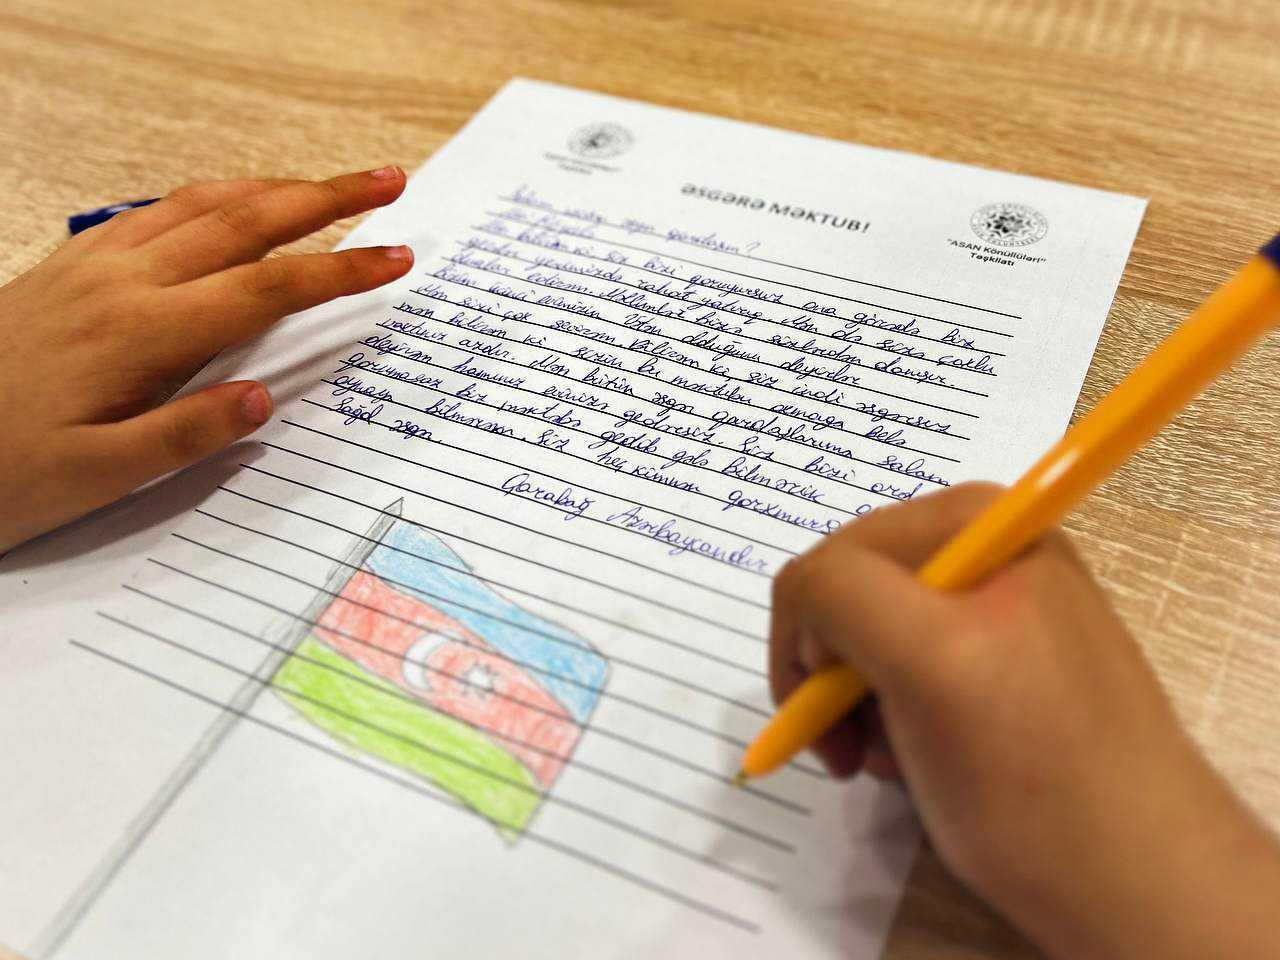 "ASAN Könüllüləri"
Təşkilatı
ƏSGƏRƏ MƏKTUB!
əsgər qardaşım?
Mən bilirəm ki siz bizi qoruyursuz ona görədə biz
gecələr yerimizdə rahat yatırıq. Mən də sizə çoxlu
dualar edirəm. Müəllimlər bizə sizlərdən danışır.
bizim ikinci evimizin Vətən olduğunu deyirlər.
Mən sizi çox sevirəm. Bilirəm ki siz indi əsgərsiz
mən bilirəm ki sizin bu məktubu oxumağa belə
vaxtınız azdır. Mən bütün əsgər qardaşlarıma salam
deyirəm hamınız evinizə gedərsiz. Siz bizi orda
qorumasaz biz məktəbə gedib gələ bilmərik
oynaya bilmərəm. Siz heç kimnən qorxmursuz
Sağol əsgər.
Qarabağ Azərbaycandır